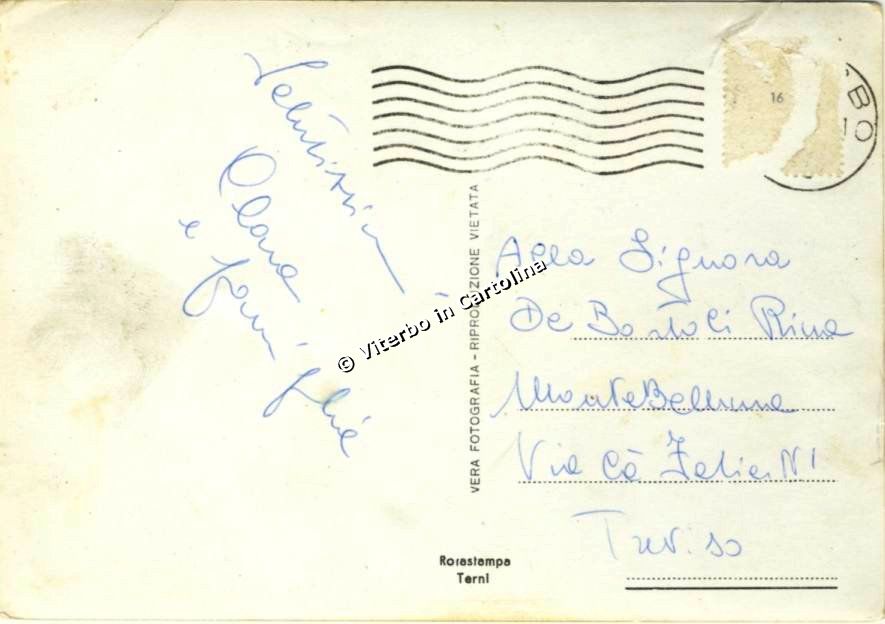 Salutissimi
Clara
e
famiglia
16
RBO
10
VERA FOTOGRAFIA - RIPRODUZIONE VIETATA
© Viterbo in Cartolina
Alla Signora
De Bortoli Rina
MonteBelluna
Via Cà Falier N 1
Treviso
Rorastampa
Terni